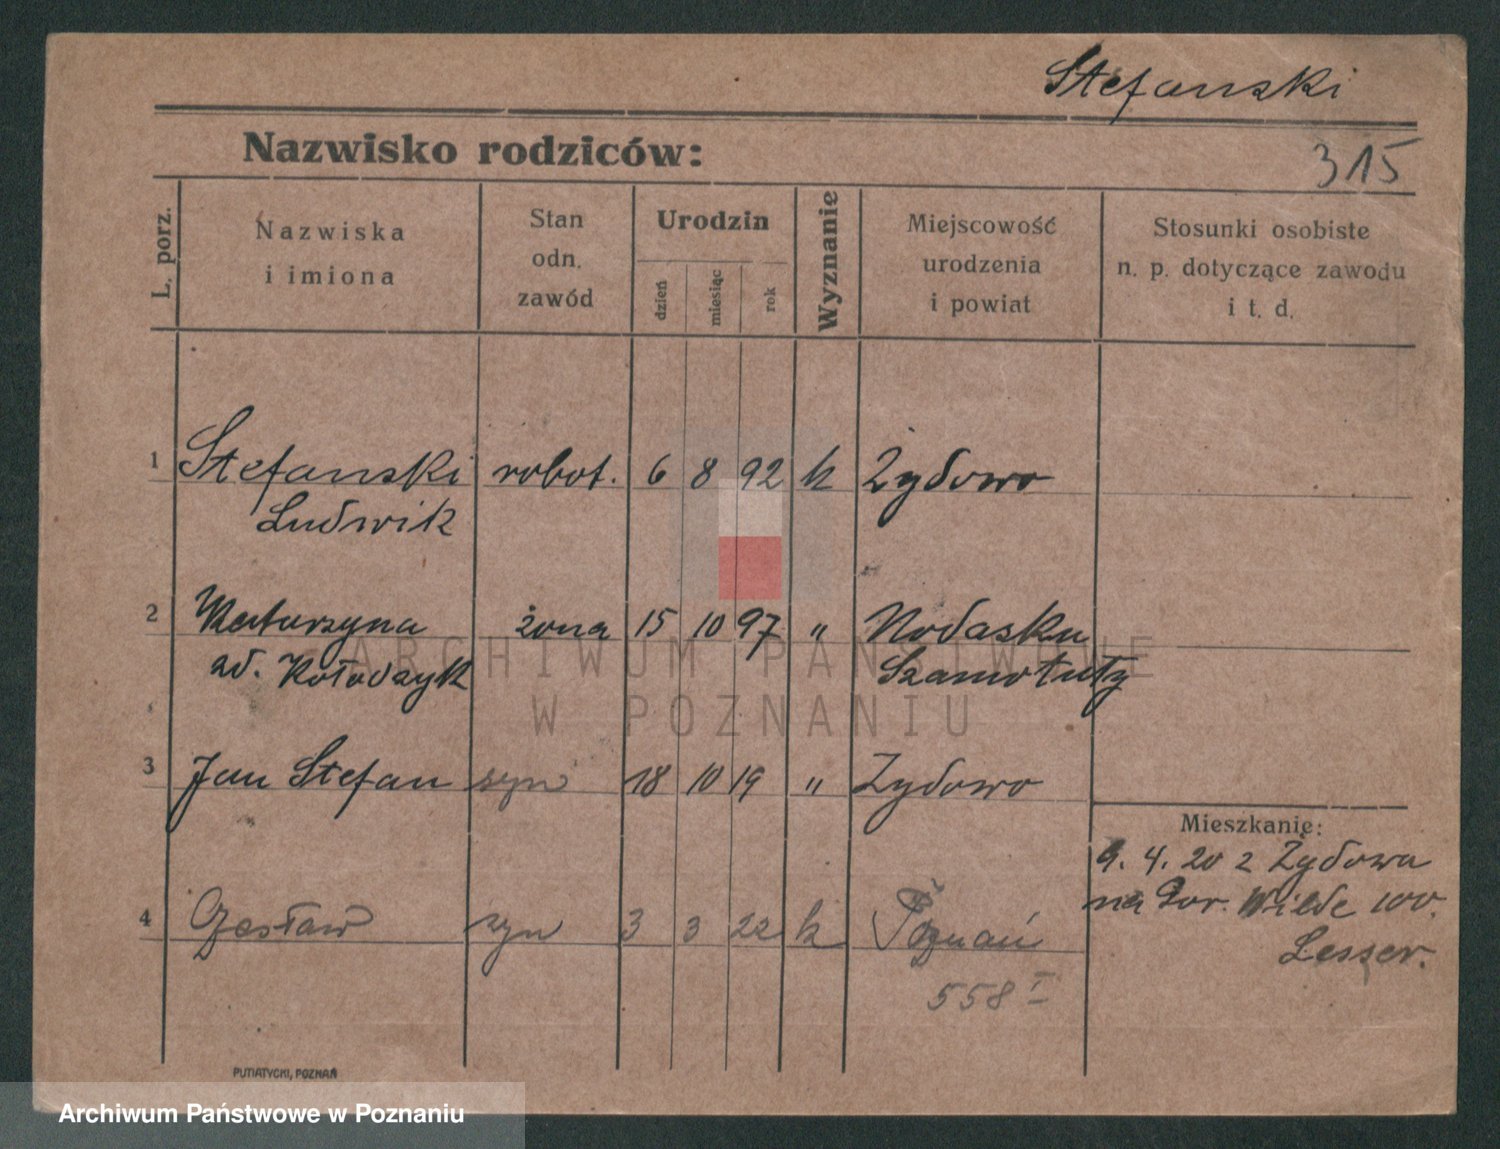 Stefanski
Nazwisko rodziców:
315
L. porz.
Nazwiska
i imiona
Stan
odn.
zawód
Urodzin
dzień
miesiąc
rok
Wyznanie
Miejscowość
urodzenia
i powiat
Stosunki osobiste
n. p. dotyczące zawodu
i t. d.
1 Stefanski robot. 6 8 92 k Żydowo
Ludwik
2 Katarzyna żona 15 10 97 " Nodasku
zd. Kołodzyk Szamotuły
3 Jan Stefan syn 18 10 19 " Zydowo
Mieszkanie:
9. 4. 20 z Żydowa
na Gór. Wilde 100.
4 Czesław syn 3 3 22 k Poznań
Lesser.
558 I
PUTIATYCKI, POZNAŃ
ARCHIWUM PAŃSTWOWE
W POZNANIU
Archiwum Państwowe w Poznaniu